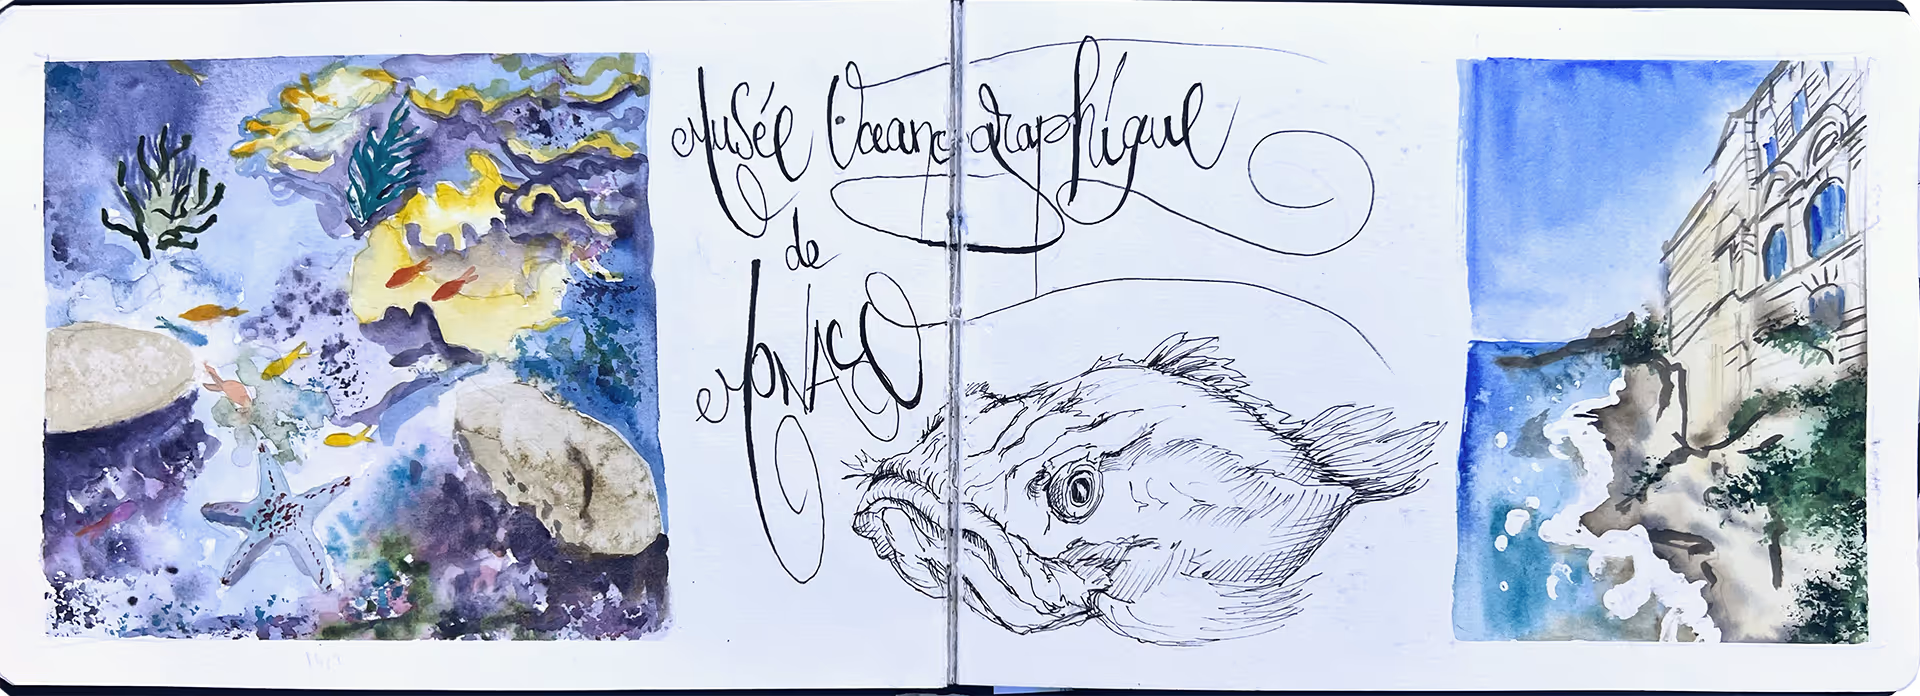 Musée Oceanographique
de
MONACO